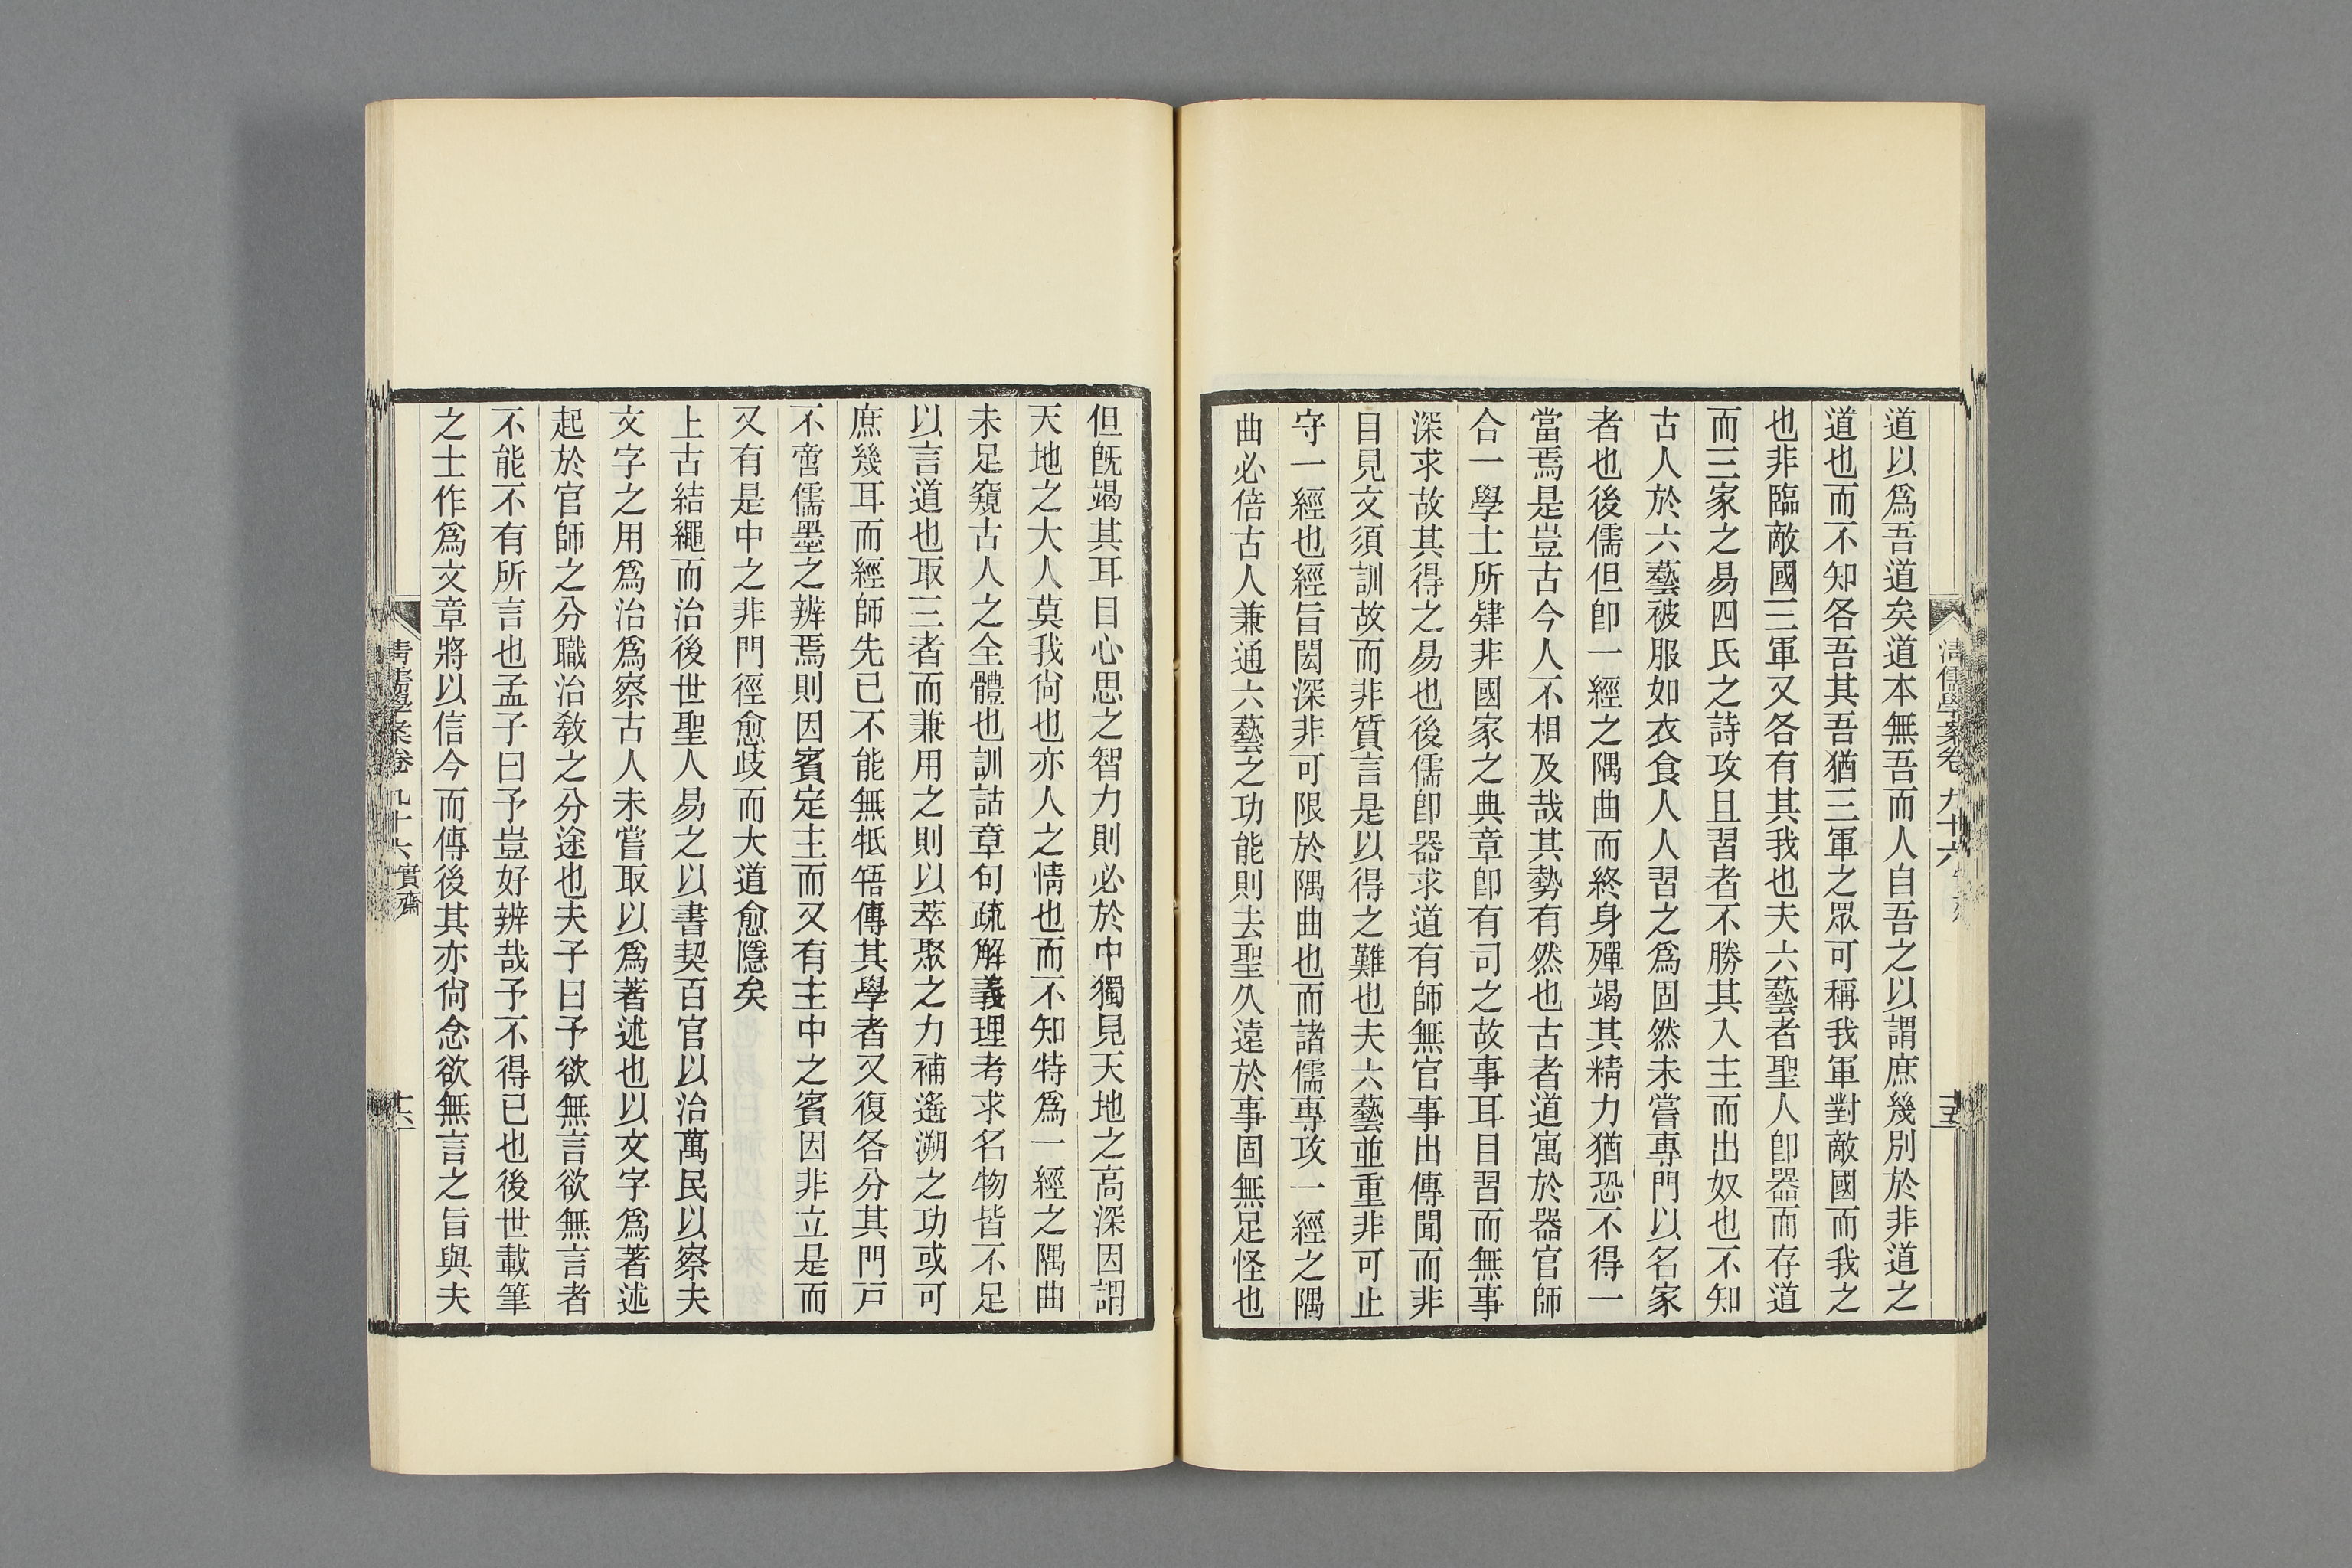 清儒學案卷九十六
道以爲吾道矣道本無吾而人自吾之以謂庶幾別於非道之
道也而不知各吾其吾猶三軍之眾可稱我軍對敵國而我之
也非臨敵國三軍又各有其我也夫六藝者聖人卽器而存道
而三家之易四氏之詩攻且習者不勝其入主而出奴也不知
古人於六藝被服如衣食人人習之爲固然未嘗專門以名家
者也後儒但卽一經之隅曲而終身殫竭其精力猶恐不得一
當焉是豈古今人不相及哉其勢有然也古者道寓於器官師
合一學士所肄非國家之典章卽有司之故事耳目習而無事
深求故其得之易也後儒卽器求道有師無官事出傳聞而非
目見文須訓故而非質言是以得之難也夫六藝並重非可止
守一經也經旨閎深非可限於隅曲也而諸儒專攻一經之隅
曲必倍古人兼通六藝之功能則去聖久遠於事固無足怪也
但旣竭其耳目心思之智力則必於中獨見天地之高深因謂
天地之大人莫我尙也亦人之情也而不知特爲一經之隅曲
未足窺古人之全體也訓詁章句疏解義理考求名物皆不足
以言道也取三者而兼用之則以萃聚之力補遙溯之功或可
庶幾耳而經師先已不能無牴牾傳其學者又復各分其門戶
不啻儒墨之辨焉則因賓定主而又有主中之賓因非立是而
又有是中之非門徑愈歧而大道愈隱矣
上古結繩而治後世聖人易之以書契百官以治萬民以察夫
文字之用爲治爲察古人未嘗取以爲著述也以文字爲著述
起於官師之分職治敎之分途也夫子曰予欲無言欲無言者
不能不有所言也孟子曰予豈好辨哉予不得已也後世載筆
之士作爲文章將以信今而傳後其亦尙念欲無言之旨與夫
清儒學案卷九十六 實齋